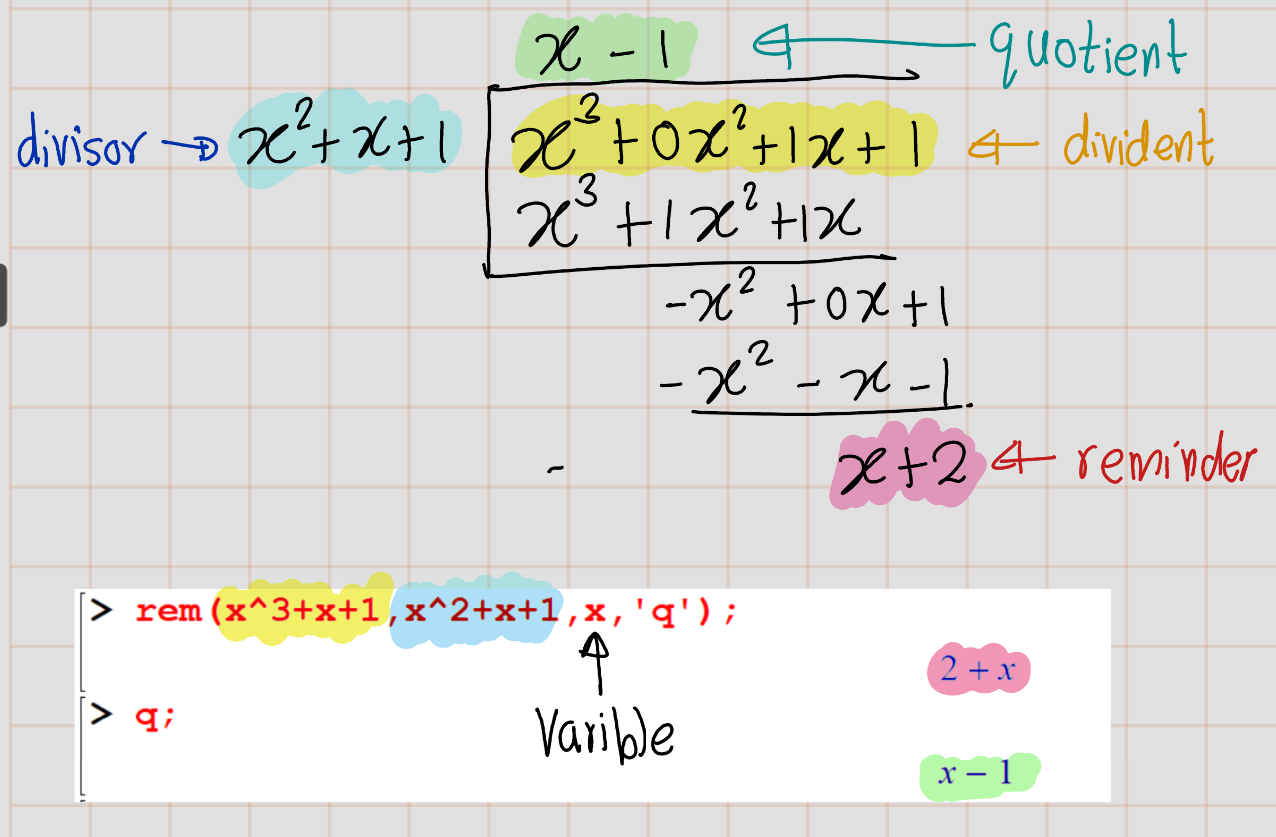 x - 1 quotient
divisor x²+x+1 x³+0x²+1x+1 divident
x³+1x²+1x
-x²+0x+1
-x²-x-1
-
x+2 reminder
> rem(x^3+x+1,x^2+x+1,x,'q');
2 + x
> q;
Varible
x − 1